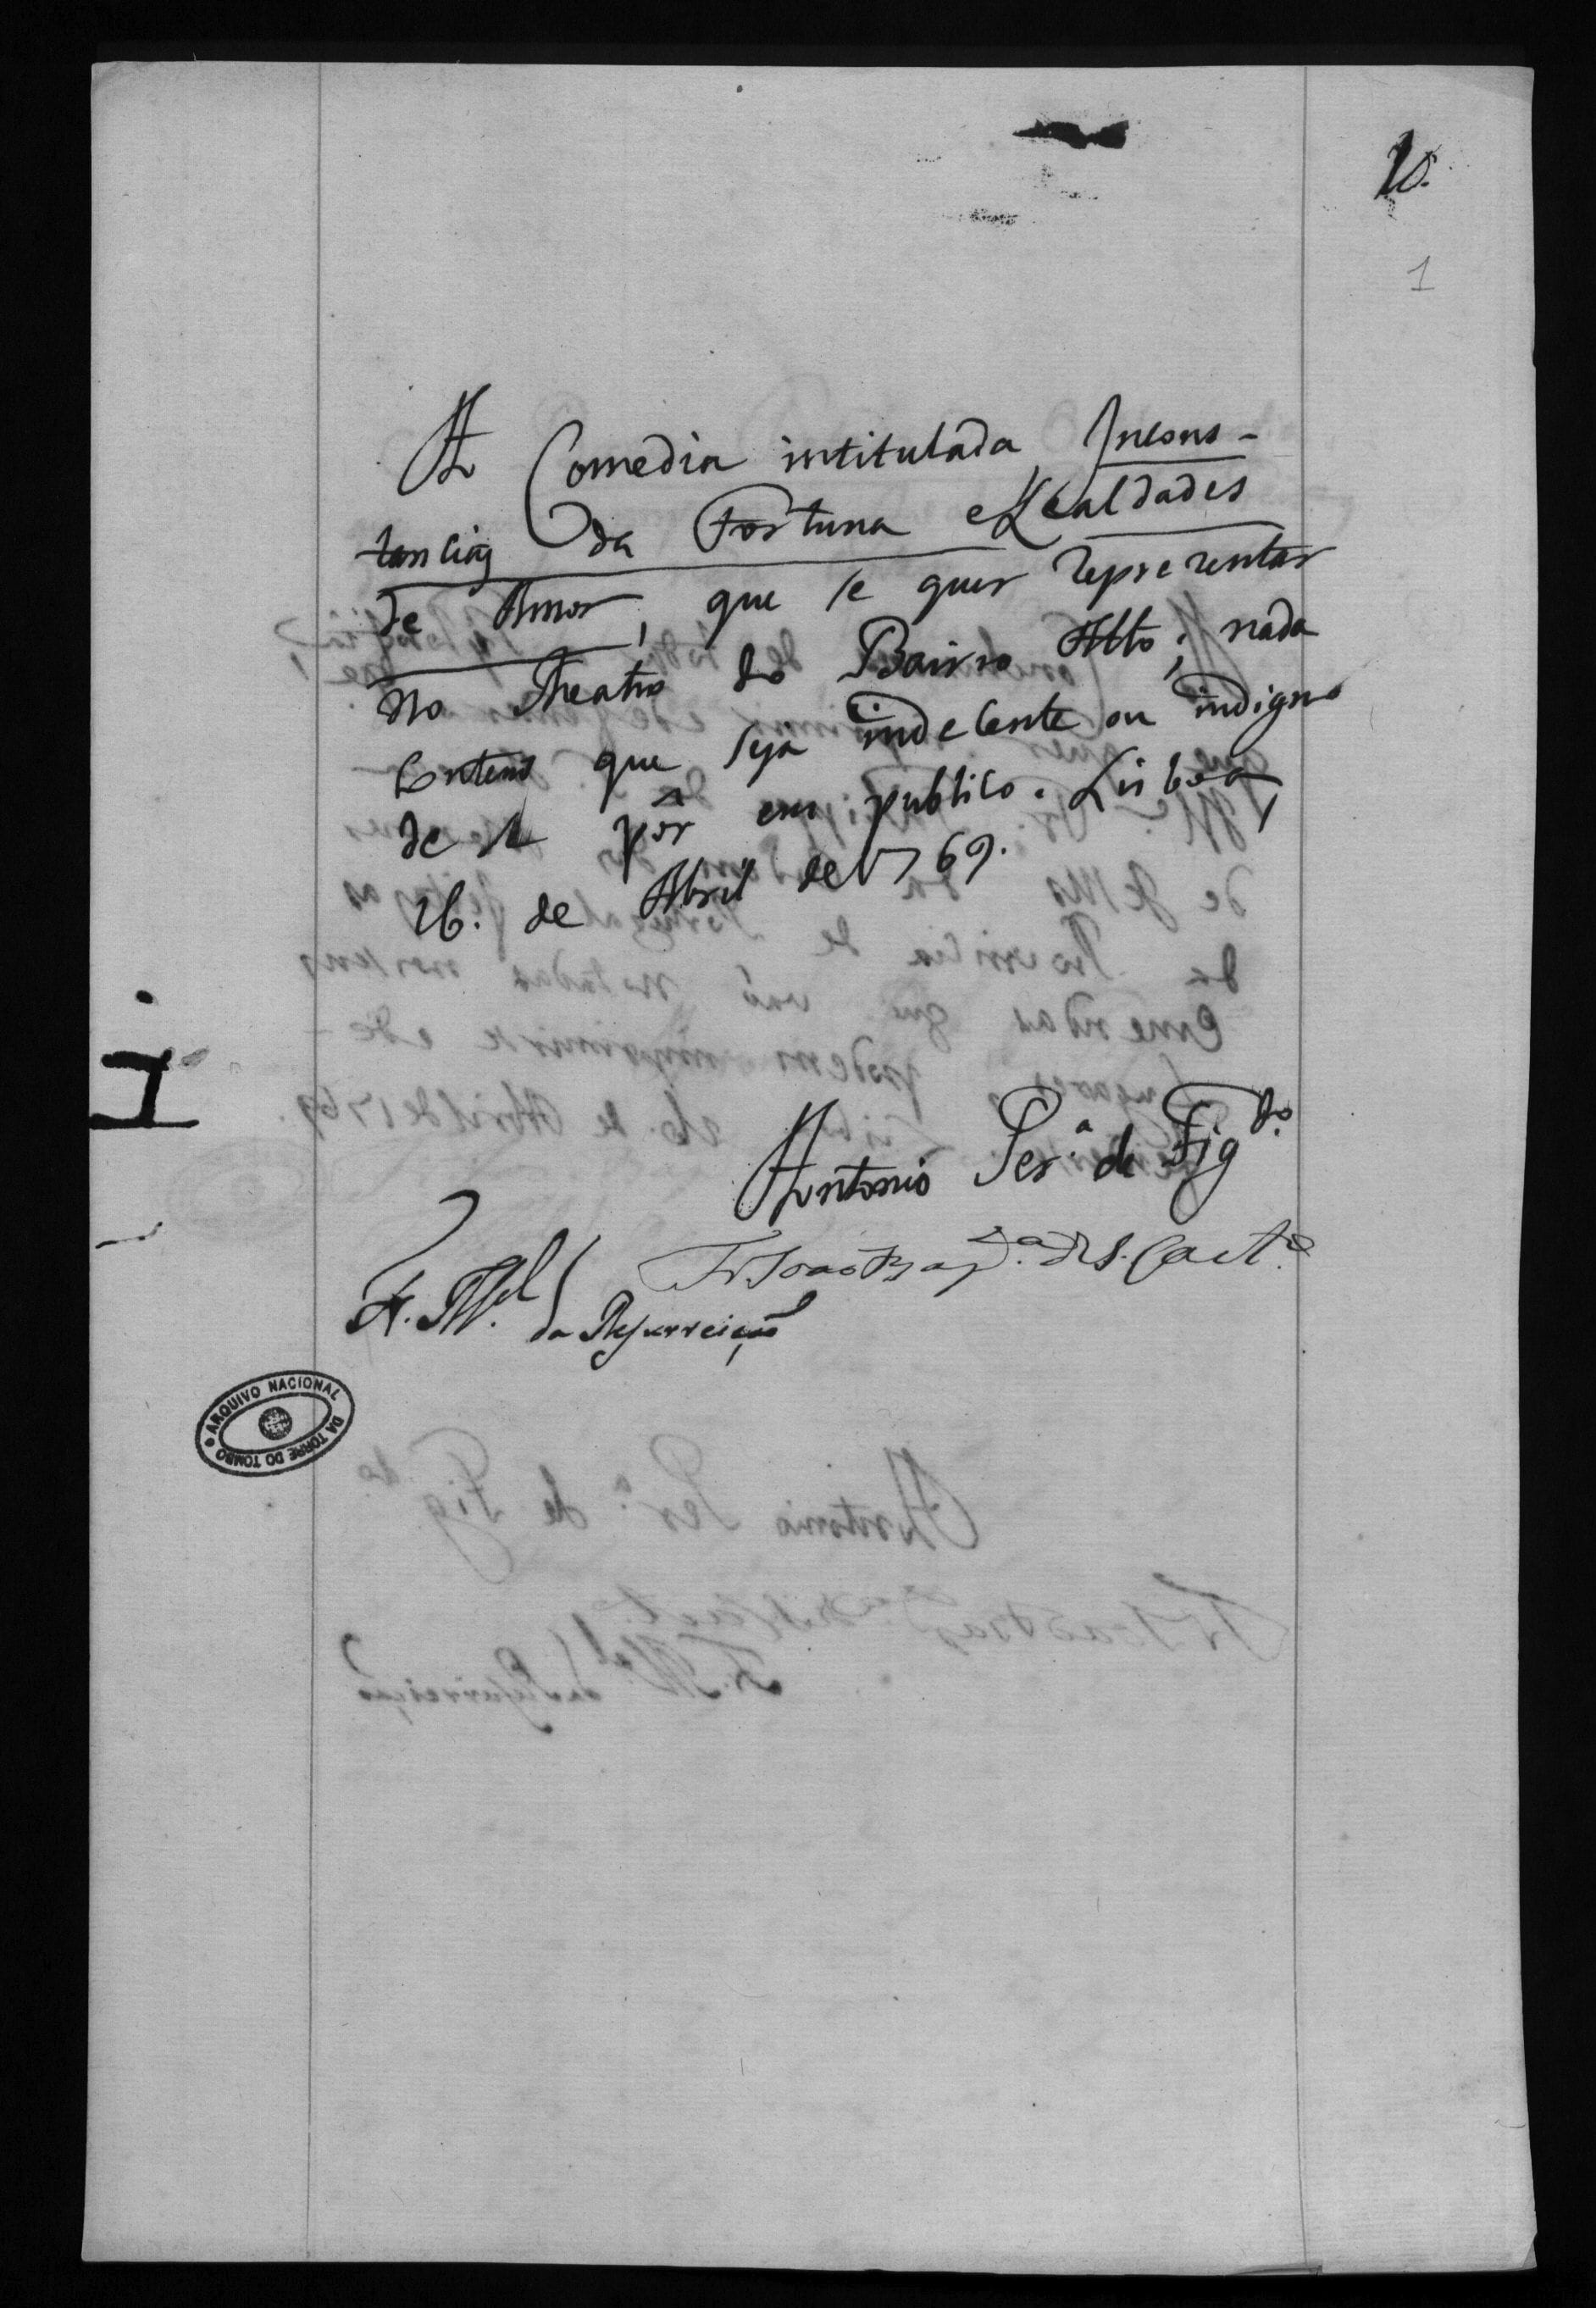 10.
1
A Comedia intitulada Incons-
tancias da Fortuna e Lealdades
de Amor, que se quer representar
no Theatro do Bairro Alto; nada
contem que seja indecente ou indigno
de se pôr em publico. Lisboa,
26. de Abril de 1769.
Antonio Per.ª de Fig.do
Fr. Joaõ Bap.ta de S. Caet.o
Fr. M.el da Resurreiçaõ
ARQUIVO NACIONAL
DA TORRE DO TOMBO